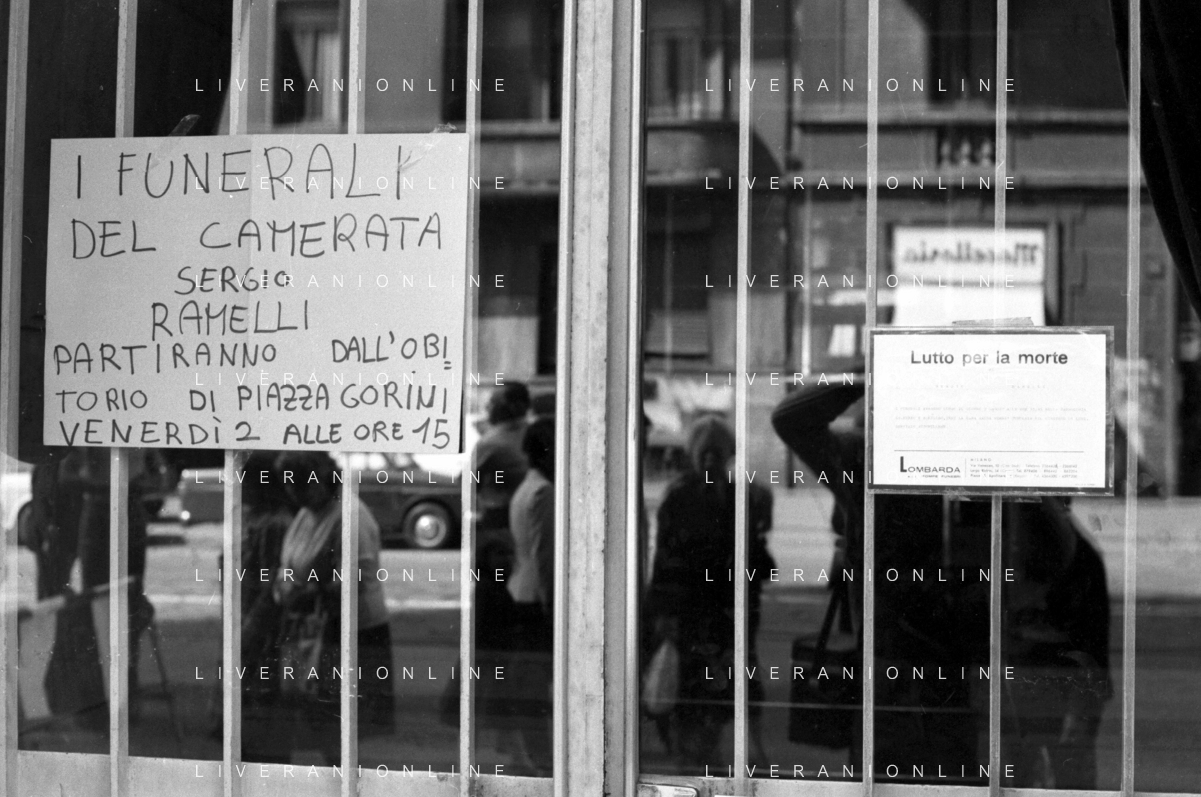 I FUNERALI
DEL CAMERATA
SERGIO
RAMELLI
PARTIRANNO DALL'OBI=
TORIO DI PIAZZA GORINI
VENERDÌ 2 ALLE ORE 15
Macelleria
Lutto per la morte
LOMBARDA
MILANO
LIVERANIONLINE LIVERANIONLINE
LIVERANIONLINE LIVERANIONLINE
LIVERANIONLINE LIVERANIONLINE
LIVERANIONLINE LIVERANIONLINE
LIVERANIONLINE LIVERANIONLINE
LIVERANIONLINE LIVERANIONLINE
LIVERANIONLINE LIVERANIONLINE
LIVERANIONLINE LIVERANIONLINE